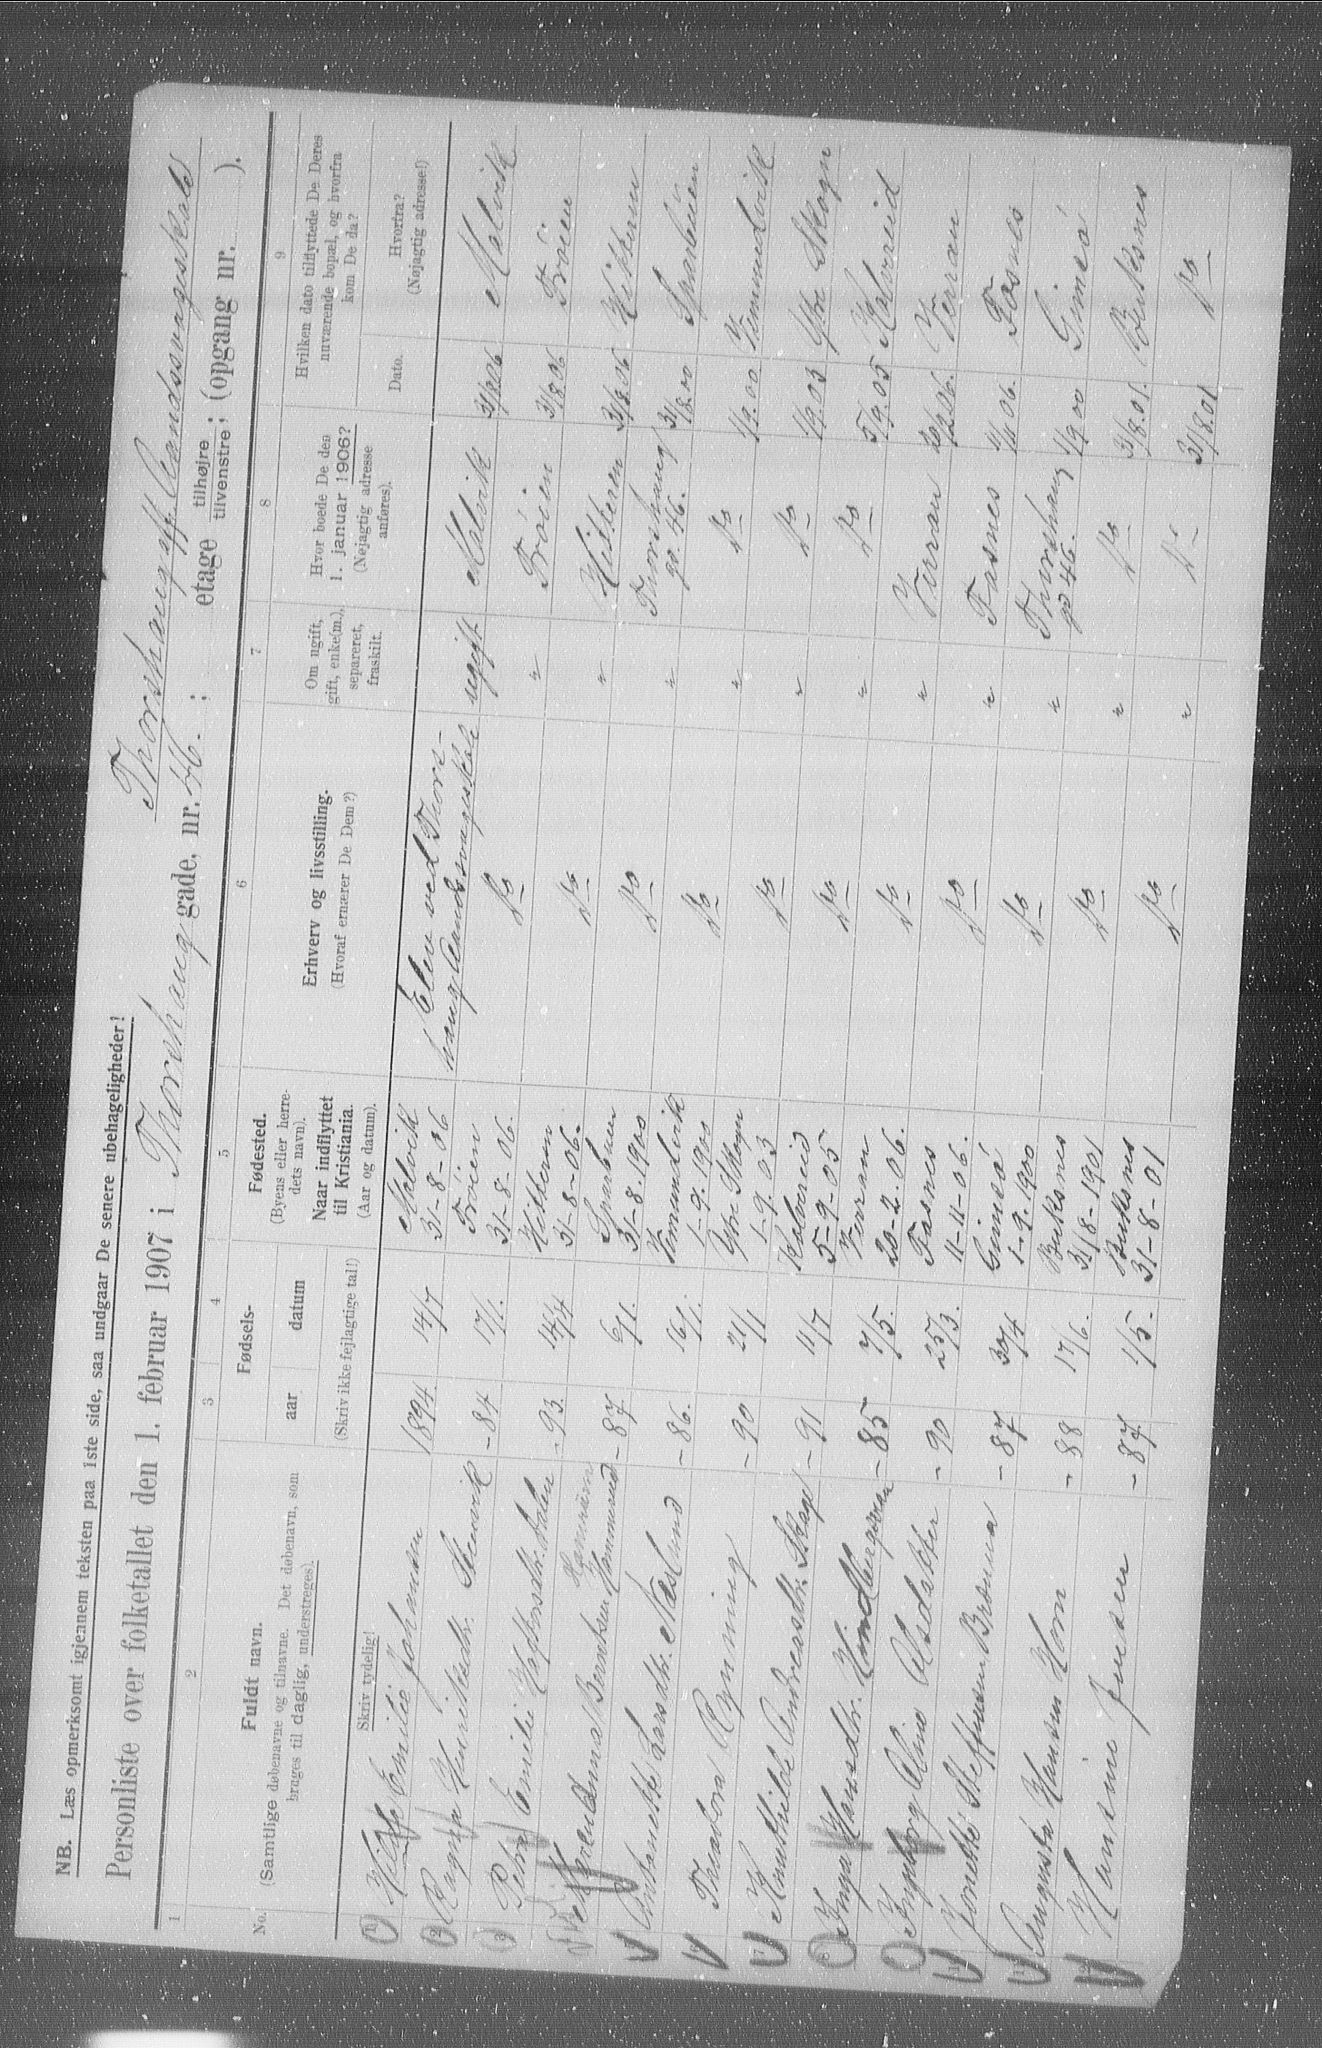 NB. Læs opmerksomt igjennem teksten paa 1ste side, saa undgaar De senere ubehageligheder!
Thorshaug aff. Aandssvageskole
Personliste over folketallet den 1. februar 1907 i Thorshaug gade, nr. 46. ; etage tilhøjre tilvenstre; (opgang nr. ).
1 2 3 4 5 6 7 8 9
No.
Fuldt navn.
(Samtlige døbenavne og tilnavne. Det døbenavn, som
bruges til daglig, understreges).
Fødsels-
aar datum
Fødested.
(Byens eller herre-
dets navn).
Naar indflyttet
til Kristiania.
(Aar og datum).
Erhverv og livsstilling.
(Hvoraf ernærer De Dem?)
Om ugift,
gift, enke(m.),
separeret,
fraskilt.
Hvor boede De den
1. januar 1906?
(Nøjagtig adresse
anføres).
Hvilken dato tilflyttede De Deres
nuværende bopæl, og hvorfra
kom De da?
Dato.
Hvorfra?
(Nøjagtig adresse!)
Skriv tydelig!
(Skriv ikke fejlagtige tal!)
1 Emilie Johnsen 1894. 14/7 Malvik 31-8-06 Elev ved Thors-
haug Aandssvageskole ugift Malvik 31/8 06 Malvik
2 Ragna Henriksdtr. - 84 17/1. Frøien 31-8-06. Do " Frøien 31/8 06 Frøien
3 Petra Emilie - 93. 14/4 Hitteren 31-8-06. Do " Hitteren 31/8 06 Hitteren
4 Anna Berntsen Hammerud - 87 6/1. Sparbuen 31-8-1900 Do " Thorshaug gd. 46. 31/8 00 Sparbuen
Antonette Larsdtr. Næslund - 86. 16/1. Vemundvik 1-9-1900 Do " Do 1/9 00 Vemundvik
Theodora Rønning - 90 21/1 Ytre Skogn 1-9-03 Do " Do 1/9 03 Ytre Skogn
Mathilde Andreasdtr. - 91 11/7 Kolvereid 5-9-05 Do " Do 5/9 05 Kolvereid
Inga Hansdtr. - 85 7/5. Verran 20-2-06. Do " Verran 20/2 06. Verran
Ingeborg - 90 25/3. Fosnes 11-11-06. Do " Fosnes 11/11 06. Fosnes
Jonette Steffensen - 87 30/4 Gimsø 1-9-1900 Do " Thorshaug gd 46. 1/9 00 Gimsø
Augusta Hansen Horn - 88 17/6. Buksnes 31/8-1901 Do " Do 31/8 01. Buksnes
Hansine Jensen - 87 1/5. Buksnes 31-8-01 Do " Do 31/8 01 Do